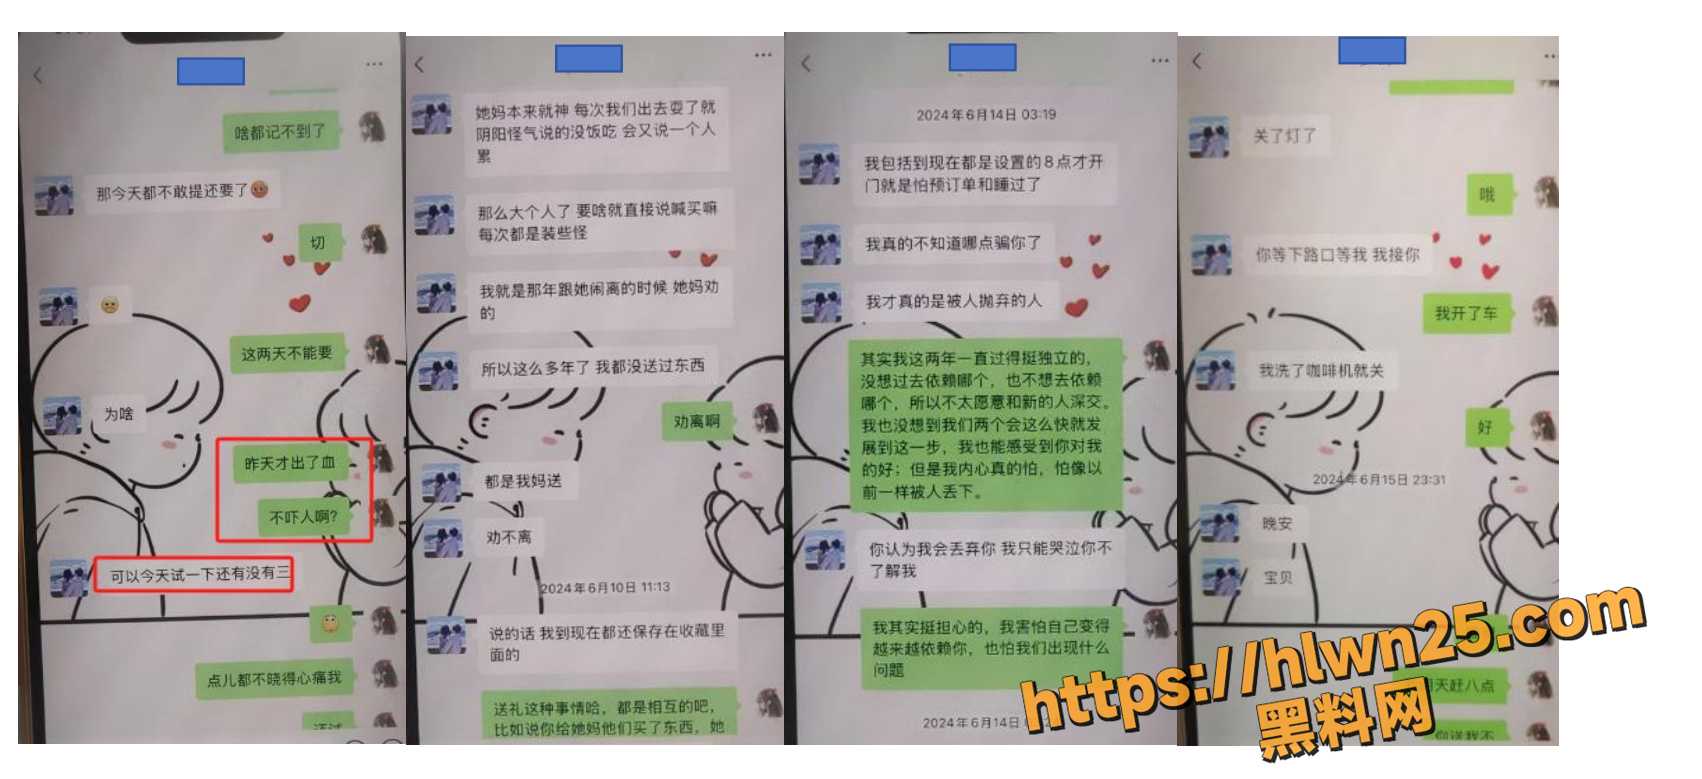 啥都记不到了
那今天都不敢提还要了
切
这两天不能要
为啥
昨天才出了血
不吓人啊?
可以今天试一下还有没有三
点儿都不晓得心痛我
她妈本来就神 每次我们出去耍了就
阴阳怪气说的没饭吃 会又说一个人
累
那么大个人了 要啥就直接说喊买嘛
每次都是装些怪
我就是那年跟她闹离的时候 她妈劝
的
所以这么多年了 我都没送过东西
劝离啊
都是我妈送
劝不离
2024年6月10日 11:13
说的话 我到现在都还保存在收藏里
面的
送礼这种事情哈，都是相互的吧，
比如说你给她妈他们买了东西，她
2024年6月14日 03:19
我包括到现在都是设置的8点才开
门就是怕预订单和睡过了
我真的不知道哪点骗你了
我才真的是被人抛弃的人
其实我这两年一直过得挺独立的，
没想过去依赖哪个，也不想去依赖
哪个，所以不太愿意和新的人深交。
我也没想到我们两个会这么快就发
展到这一步，我也能感受到你对我
的好；但是我内心真的怕，怕像以
前一样被人丢下。
你认为我会丢弃你 我只能哭泣你不
了解我
我其实挺担心的，我害怕自己变得
越来越依赖你，也怕我们出现什么
问题
2024年6月14日
关了灯了
哦
你等下路口等我 我接你
我开了车
我洗了咖啡机就关
好
2024年6月15日 23:31
晚安
宝贝
天赶八点
https://hlwn25.com
黑料网